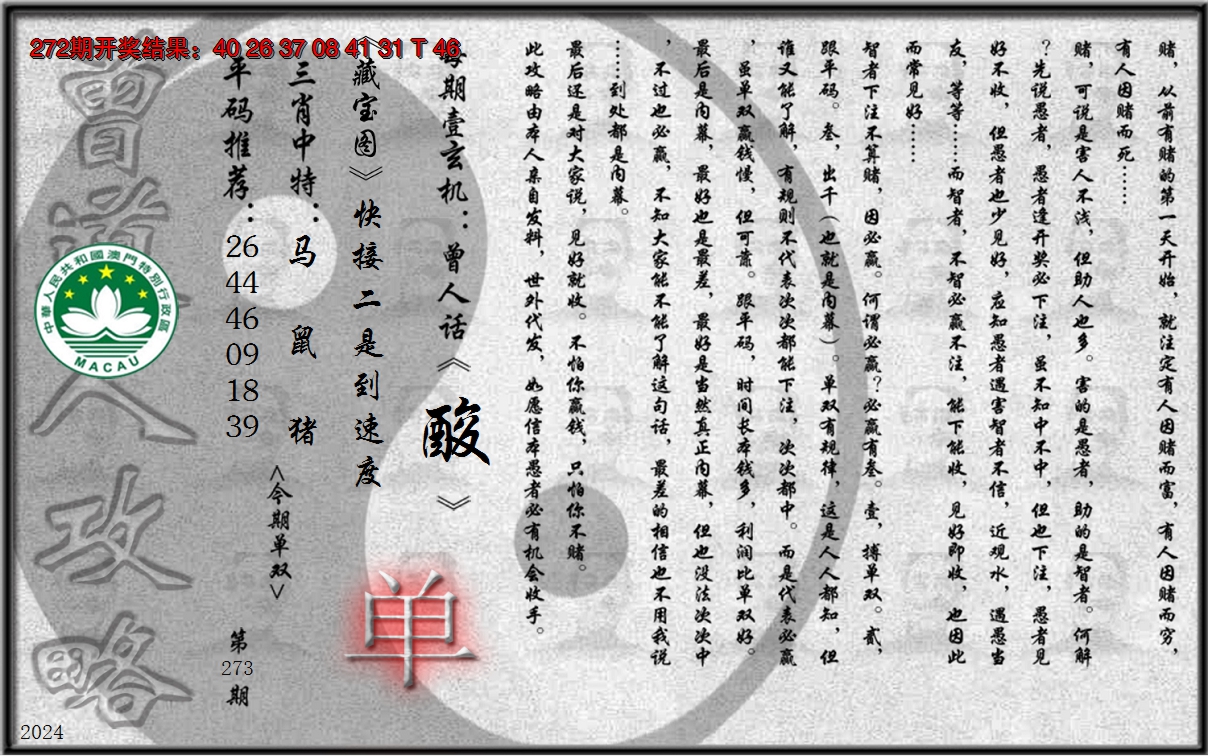 272期开奖结果：40 26 37 08 41 31 T 46
赌，从前有赌的第一天开始，就注定有人因赌而富，有人因赌而穷，
有人因赌而死……
赌，可说是害人不浅，但助人也多。害的是愚者，助的是智者。何解
？先说愚者，愚者逢开奖必下注，虽不知中不中，但也下注，愚者见
好不收，但愚者也少见好，应知愚者遇害智者不信，近观水，遇愚当
友，等等……而智者，不智必赢不注，能下能收，见好即收，也因此
而常见好……
智者下注不算赌，因必赢。何谓必赢？必赢有叁。壹，搏单双。贰，
跟平码。叁，出千（也就是内幕）。单双有规律，这是人人都知，但
谁又能了解，有规则不代表次次都能下注，次次都中。而是代表必赢
，虽单双赢钱慢，但可靠。跟平码，时间长本钱多，利润比单双好。
最后是内幕，最好也是最差，最好是当然真正内幕，但也没法次次中
，不过也必赢，不知大家能不能了解这句话，最差的相信也不用我说
……到处都是内幕。
最后还是对大家说，见好就收。不怕你赢钱，只怕你不赌。
此攻略由本人亲自发料，世外代发，如愿信本愚者必有机会收手。
每期壹玄机：曾人话《酸》
《藏宝图》快接二是到速度
单
三肖中特：马 鼠 猪
<今期单双>
平码推荐：26 44 46 09 18 39
第273期
曾道人攻略
中華人民共和國澳門特別行政區
MACAU
2024